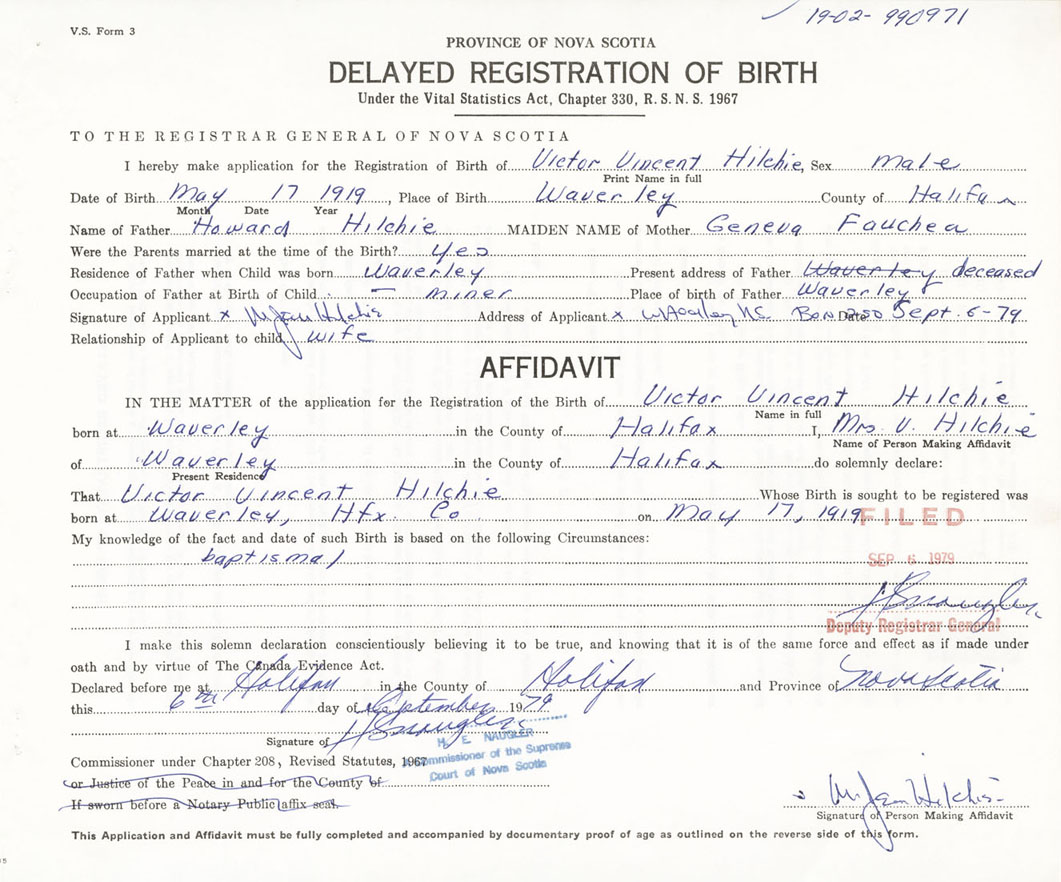 19-02-990971
V.S. Form 3
PROVINCE OF NOVA SCOTIA
DELAYED REGISTRATION OF BIRTH
Under the Vital Statistics Act, Chapter 330, R.S.N.S. 1967
TO THE REGISTRAR GENERAL OF NOVA SCOTIA
I hereby make application for the Registration of Birth of Victor Vincent Hilchie, Sex male
Print Name in full
Date of Birth May 17 1919, Place of Birth Waverley County of Halifax
Month Date Year
Name of Father Howard Hilchie MAIDEN NAME of Mother Geneva Fauchea
Were the Parents married at the time of the Birth? yes
Residence of Father when Child was born Waverley Present address of Father Waverley deceased
Occupation of Father at Birth of Child - miner Place of birth of Father Waverley
Signature of Applicant x M. Jean Hilchie Address of Applicant x Waverley N.S. Box 250 Date Sept. 6-79
Relationship of Applicant to child wife
AFFIDAVIT
IN THE MATTER of the application for the Registration of the Birth of Victor Vincent Hilchie
Name in full
born at Waverley in the County of Halifax I, Mrs. V. Hilchie
Name of Person Making Affidavit
of Waverley in the County of Halifax do solemnly declare:
Present Residence
That Victor Vincent Hilchie Whose Birth is sought to be registered was
born at Waverley, Hfx. Co. on May 17, 1919
FILED
My knowledge of the fact and date of such Birth is based on the following Circumstances:
baptismal
SEP 6 1979
Deputy Registrar General
I make this solemn declaration conscientiously believing it to be true, and knowing that it is of the same force and effect as if made under
oath and by virtue of The Canada Evidence Act.
Declared before me at Halifax in the County of Halifax and Province of Nova Scotia
this 6th day of September 1979
Signature of
H. E. NAUGLER
A Commissioner of the Supreme
Court of Nova Scotia
Commissioner under Chapter 208, Revised Statutes, 1967
or Justice of the Peace in and for the County of
If sworn before a Notary Public affix seal.
M. Jean Hilchie
Signature of Person Making Affidavit
This Application and Affidavit must be fully completed and accompanied by documentary proof of age as outlined on the reverse side of this form.